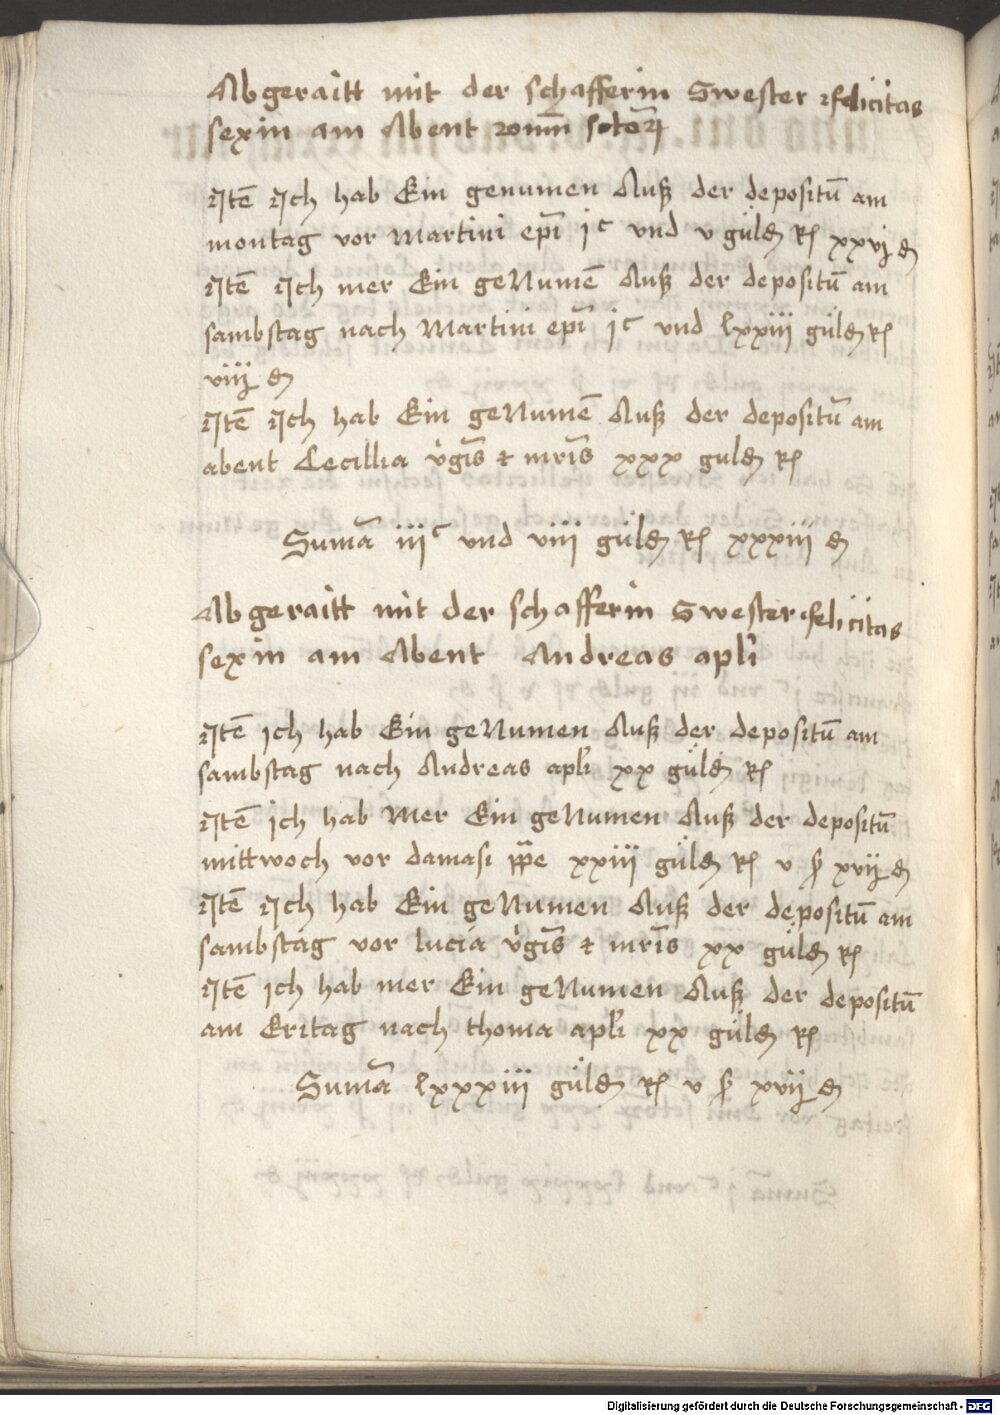 Abgeraitt mit der schafferin Swester felicitas
sexin am Abent omniū sctōrz
Jtē Jch hab Ein genumen Auß der depositū am
montag vor Martini epī jᶜ vnd v güldē Rſ xxvj ₰
Jtē Jch mer Ein geNumē Auß der depositū am
sambstag nach Martini epī jᶜ vnd lxxiii güldē Rſ
viij ₰
Jtē Jch hab Ein geNumē Auß der depositū am
abent Cecillia v̓gīs et mrīs xxx guldē Rſ
Sumā iiiᶜ vnd viii güldē Rſ xxxiii ₰
Abgeraitt mit der schafferin Swester felicitas
sexin am Abent Andreas apli
Jtē ich hab Ein geNumen Auß der depositū am
sambstag nach Andreas apli xx güldē Rſ
Jtē ich hab Mer Ein geNumen Auß der depositū
mittwoch vor damasi ppe xxiii güldē Rſ v ẜ xvij ₰
Jtē Jch hab Ein geNumen Auß der depositū am
sambstag vor lucia v̓gīs et mrīs xx güldē Rſ
Jtē ich hab mer Ein geNumen Auß der depositū
am Eritag nach thoma apli xx güldē Rſ
Sumā lxxxiii güldē Rſ v ẜ xvij ₰
Digitalisierung gefördert durch die Deutsche Forschungsgemeinschaft - DFG